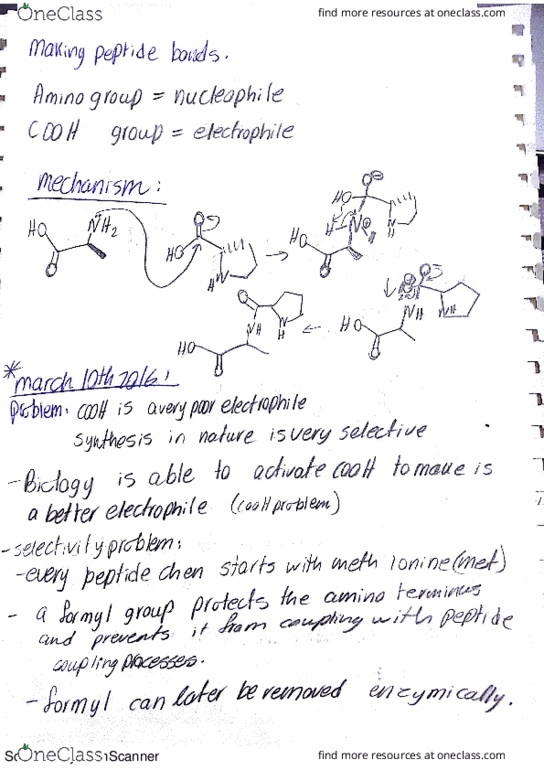 OneClass
find more resources at oneclass.com
Making peptide bonds.
Amino group = nucleophile
COOH group = electrophile
Mechanism:
HO NH2 O
HO O N
HO O H N
HO O NH N H O
HO O NH NH
* march 10th 2016!
Problem: COOH is a very poor electrophile
synthesis in nature is very selective
- Biology is able to activate COOH to make is
a better electrophile (COOH problem)
- selectivity problem:
- every peptide chen starts with methionine (met)
- a formyl group protects the amino terminus
and prevents it from coupling with peptide
coupling processes.
- formyl can later be removed enzymically.
OneClass
Scanner
find more resources at oneclass.com